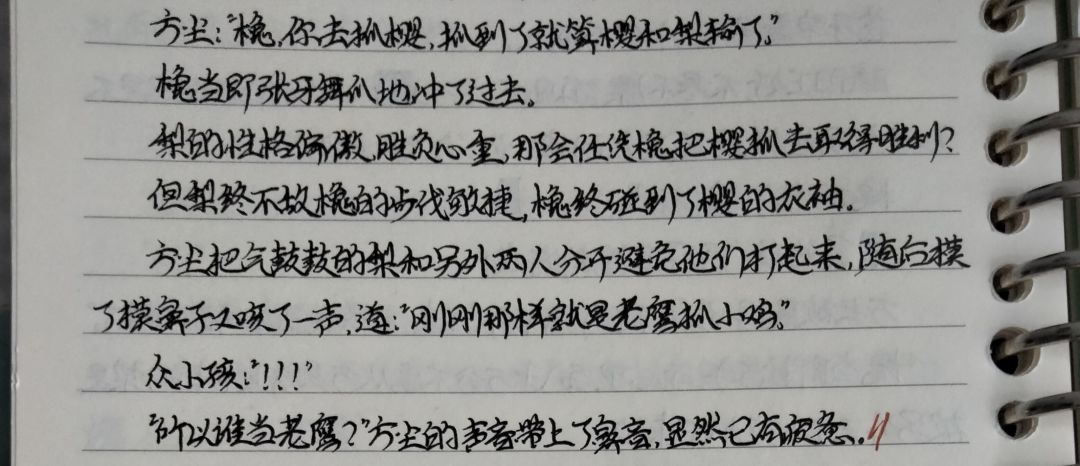 方尘：“槐，你去抓樱，抓到了就算樱和梨输了。”
槐当即张牙舞爪地冲了过去。
梨的性格骄傲，胜负心重，那会任凭槐把樱抓去取得胜利？
但梨终不敌槐的步伐敏捷，槐终碰到了樱的衣袖。
方尘把气鼓鼓的梨和另外两人分开避免他们打起来，随后摸
了摸鼻子又咳了一声，道：“刚刚那样就是老鹰抓小鸡。”
众小孩：“！！！”
“所以谁当老鹰？”方尘的声音带上了鼻音，显然已有疲惫。